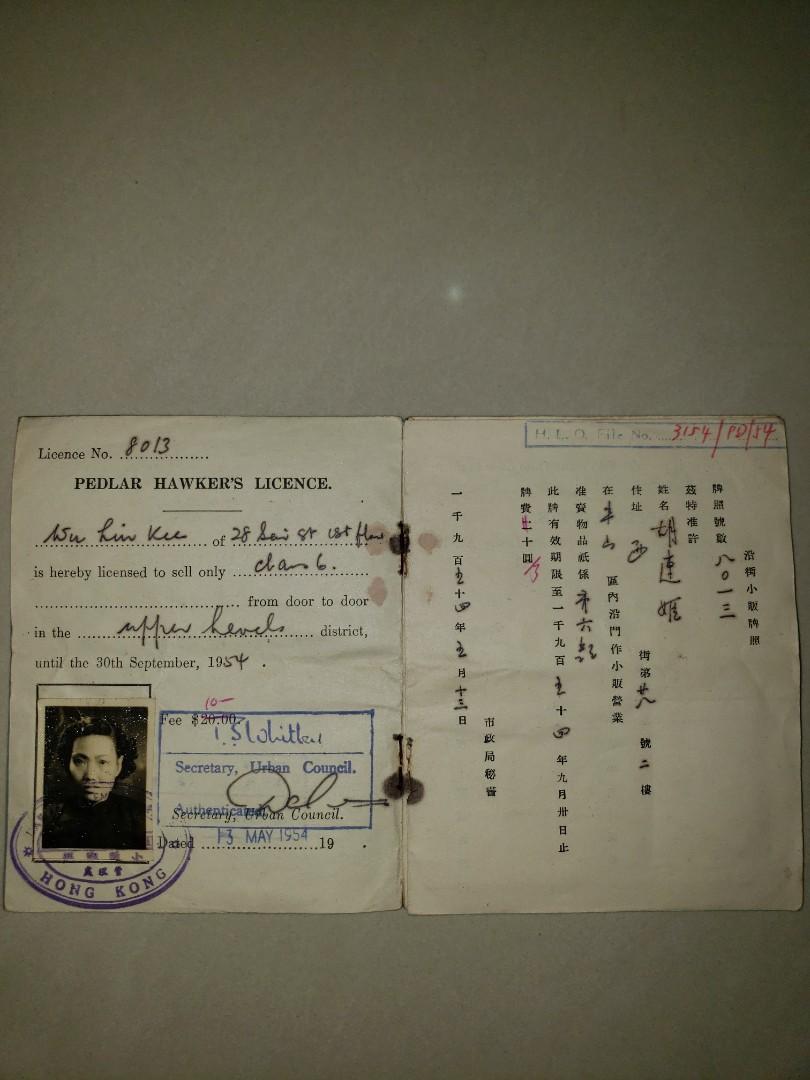 Licence No. 8013
PEDLAR HAWKER'S LICENCE.
Wu Lin Kee of 28 Sai St 1st floor
is hereby licensed to sell only class 6.
from door to door
in the upper levels district,
until the 30th September, 1954.
10-
Fee $20.00.
Secretary, Urban Council.
Authenticated
Secretary, Urban Council.
Dated 13 MAY 1954 19 .
HONG KONG
H. L. O. File No. 3154/PD/54
沿街小販牌照
牌照號數八〇一三
茲特准許
姓名 胡連姬
住址 西 街第廿八 號二樓
在半山區內沿門作小販營業
准賣物品祇係第六類
此牌有效期限至一千九百五十四年九月卅日止
牌費十圓
市政局秘書
一千九百五十四年五月十三日